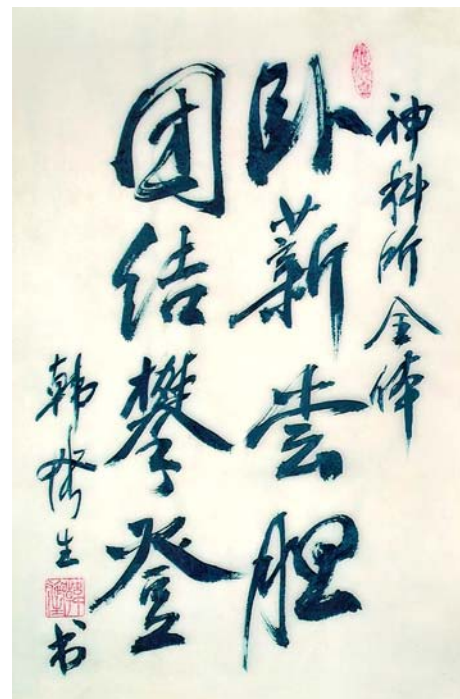 神科所全体
卧薪尝胆
团结攀登
韩济生书